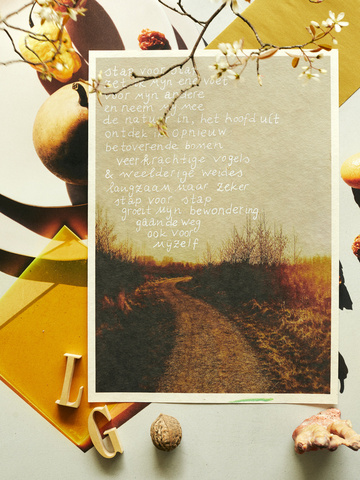 stap voor stap
zet ik mijn ene voet
voor mijn andere
en neem mij mee
de natuur in, het hoofd uit
ontdek ik opnieuw
betoverende bomen
veerkrachtige vogels
& weelderige weides
langzaam naar zeker
stap voor stap
groeit mijn bewondering
gaandeweg
ook voor
mijzelf
L
G